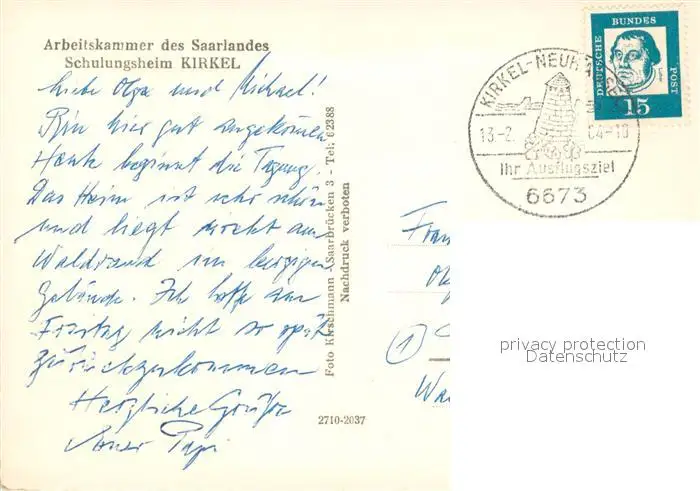 Arbeitskammer des Saarlandes
Schulungsheim KIRKEL
Liebe Olga und Michael!
Bin hier gut angekommen
Heute beginnt die Tagung.
Das Heim ist sehr schön
und liegt direkt am
Waldrand im bergigen
Gelände. Ich hoffe am
Freitag nicht so spät
zurückzukommen
Herzliche Grüße
Euer Papi
Foto Kirschmann - Saarbrücken 3 - Tel: 62388
Nachdruck verboten
2710-2037
KIRKEL-NEUH
13.-2.
64-10
Ihr Ausflugsziel
6673
DEUTSCHE
BUNDES
POST
15
Frau
1
privacy protection
Datenschutz